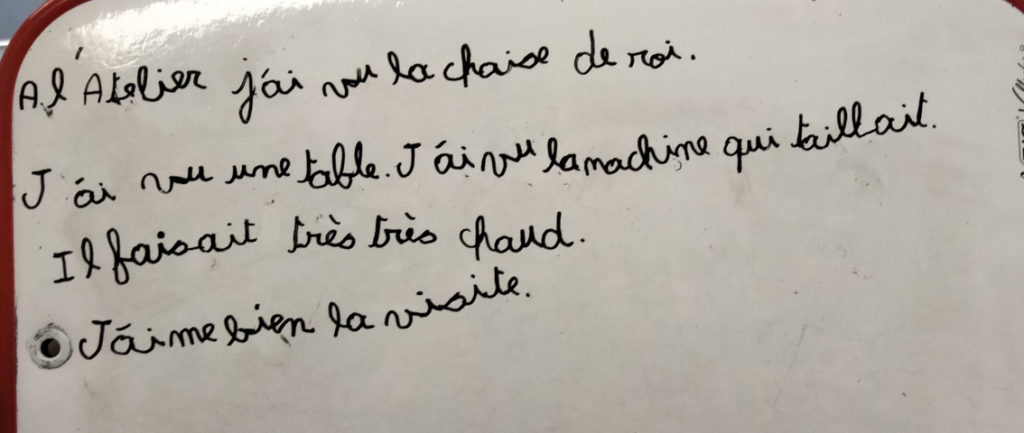 A l'Atelier j'ai vu la chaise de roi.
J'ai vu une table. J'ai vu la machine qui taillait.
Il faisait très très chaud.
J'aime bien la visite.